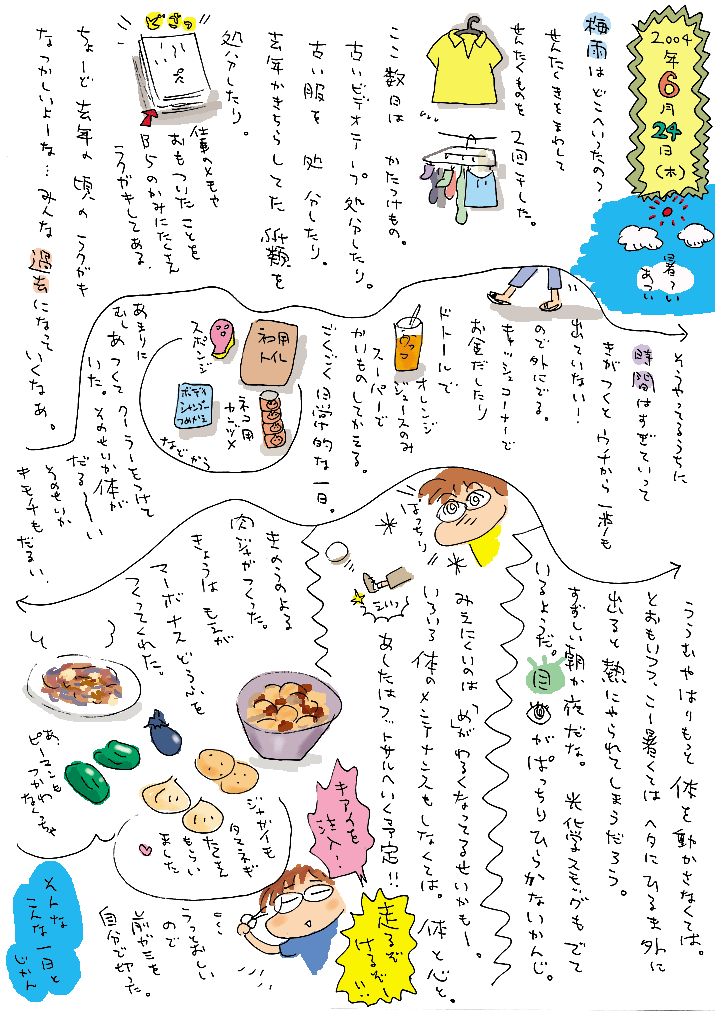 2004
年
6
月
24
日
(木)
暑〜い
あつい
梅雨はどこへいったの?
せんたくきをまわして
せんたくものを2回干した。
ここ数日は かたづけもの。
古いビデオテープ処分したり。
古い服を処分したり。
去年かきちらしてた紙類を
処分したり。
どさっ
仕事のメモや
おもいついたことを
B5のかみにたくさん
ラクガキしてある。
ちょーど去年の頃のラクガキ
なつかしいよーな…みんな過去になって
いくなあ。
そうやってるうちに
時間はすぎていって
きがつくとウチから一歩も
出ていない!
ので外にでる。
キャッシュコーナーで
お金だしたり
ドトールで オレンジ
ジュースのみ
スーパーで
かいものしてかえる。
ごくごく日常的な一日。
ネコ用
トイレ
スポンジ
ネコ用
カンヅメ
ボディ
シャンプー
つめかえ
などから
あまりに
むしあつくてクーラーをつけて
いた。そのせいか体が
だる〜〜い
そのせいか
キモチもだるい。
ううむやはりもっと体を動かさなくては。
とおもいつつ、こー暑くてはヘタにひるま外に
出ると熱にやられてしまうだろう。
すずしい朝か夜だな。 光化学スモッグもでて
いるようだ。
目がぱっちりひらかないかんじ。
ぱっちり
みえにくいのは「め」がわるくなってるせいかもー。
いろいろ体のメンテナンスもしなくては。体と心と。
あしたはフットサルへいく予定!!
キアイを
注入!
走るぞ
けるぞー
!!
きのうのよる
肉ジャがつくった。
きょうは
マーボナスどうふを
つくってくれた。
あ、
ピーマンも
つかわ
なくっちゃ
ジャガイモ
タマネギ
たくさん
もらい
ました
うっとおしい
ので
前がみを
自分で切った。
そんな
こんな一日と
じかん